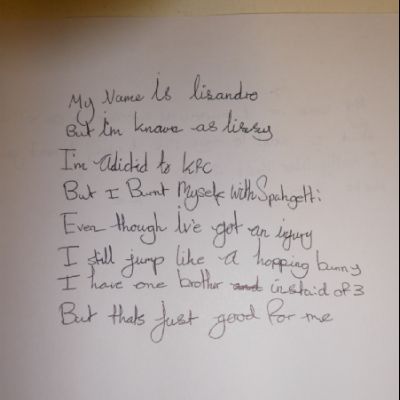 My Name is lisandro
But I'm knowe as lissy
I'm adictid to KFC
But I Burnt Myself with Spahgetti
Even though I've got an injury
I still jump like a hopping bunny
I have one brother and instaid of 3
But thats just good for me